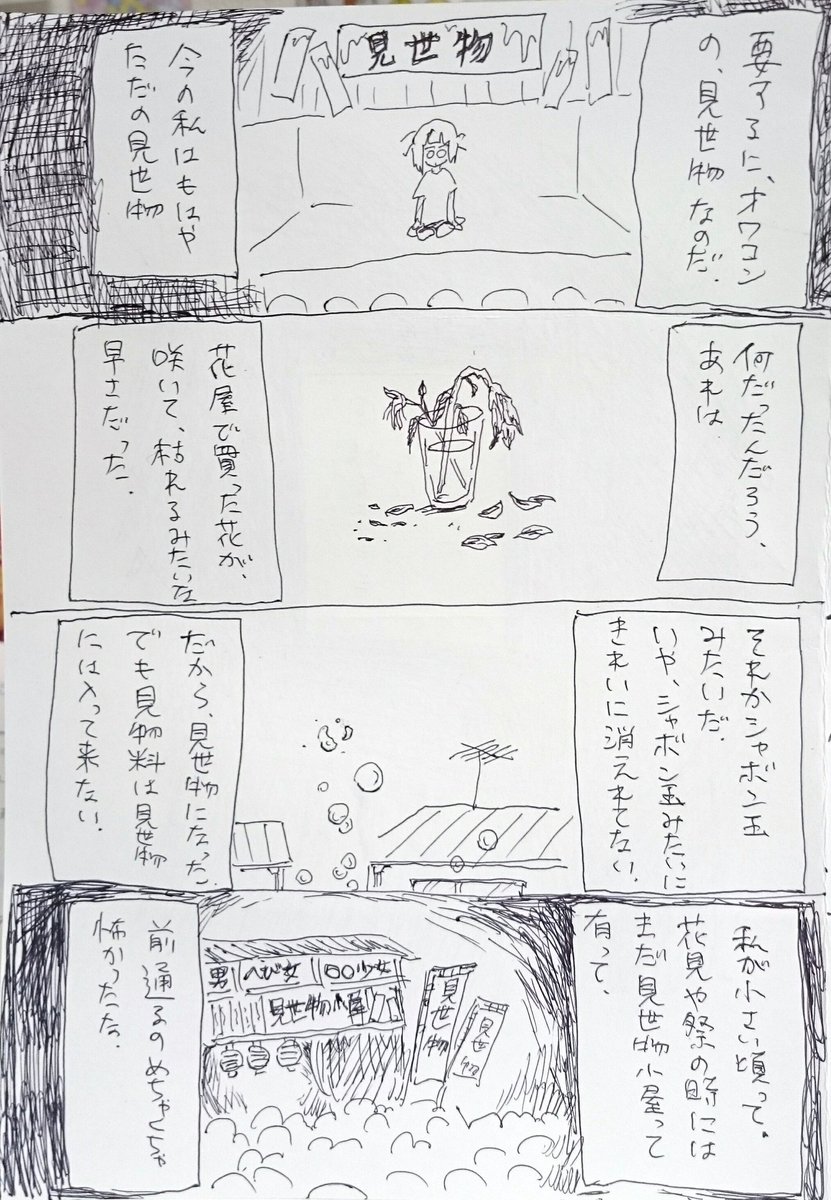 要するに、オワコン
の、見世物なのだ.
見世物
今の私はもはや
ただの見世物
何だったんだろう、
あれは.
花屋で買った花が、
咲いて、枯れるみたいな
早さだった.
それかシャボン玉
みたいだ.
いや、シャボン玉みたいに
きれいに消えれてない.
だから、見世物になった
でも見物料は見世物
には入って来ない.
私が小さい頃って.
花見や祭の時には
まだ見世物小屋って
有って、
男
へび女
〇〇少女
見世物小屋
見世物
見世物
前通るのめちゃくちゃ
怖かったな.